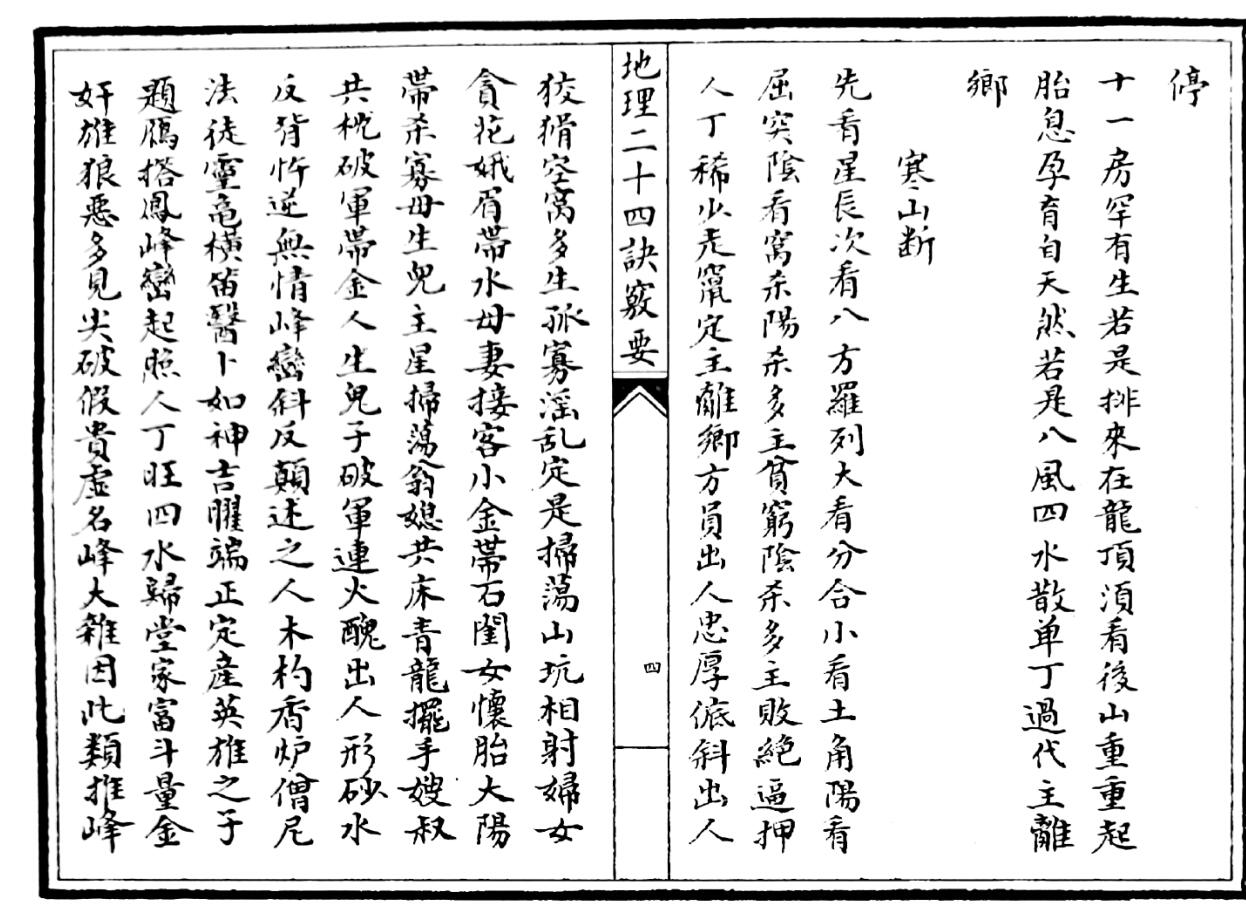 停
十一房罕有生若是排來在龍頂須看後山重重起
胎息孕育自天然若是八風四水散单丁過代主離
鄉
寒山断
先看星辰次看八方羅列大看分合小看土角陽看
屈突陰看窩杀陽杀多主貧窮陰杀多主敗絶逼押
人丁稀少走竄定主離鄉方員出人忠厚偏斜出人
地理二十四訣竅要
四
狡猾空窩多生孤寡滛乱定是掃蕩山坑相射婦女
貪花娥眉帶水母妻接客小金帶石閨女懷胎大陽
帶杀寡母生兒主星掃蕩翁媳共床青龍擺手嫂叔
共枕破軍帶金人生兒子破軍連火醜出人形砂水
反背忤逆無情峰巒斜反顛迷之人木杓香炉僧尼
法徒靈亀横笛醫卜如神吉曜端正定産英雄之子
題鴈搭鳳峰巒起照人丁旺四水歸堂家富斗量金
奸雄狼惡多見尖破假貴虚名峰大雜因此類推峰